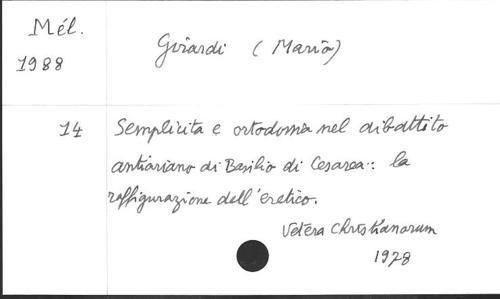 Mél.
1988
Girardi (Mario)
14
Semplicita e ortodossia nel dibattito
antiariano di Basilio di Cesarea : la
raffigurazione dell'eretico.
Vetera Christianorum
1978